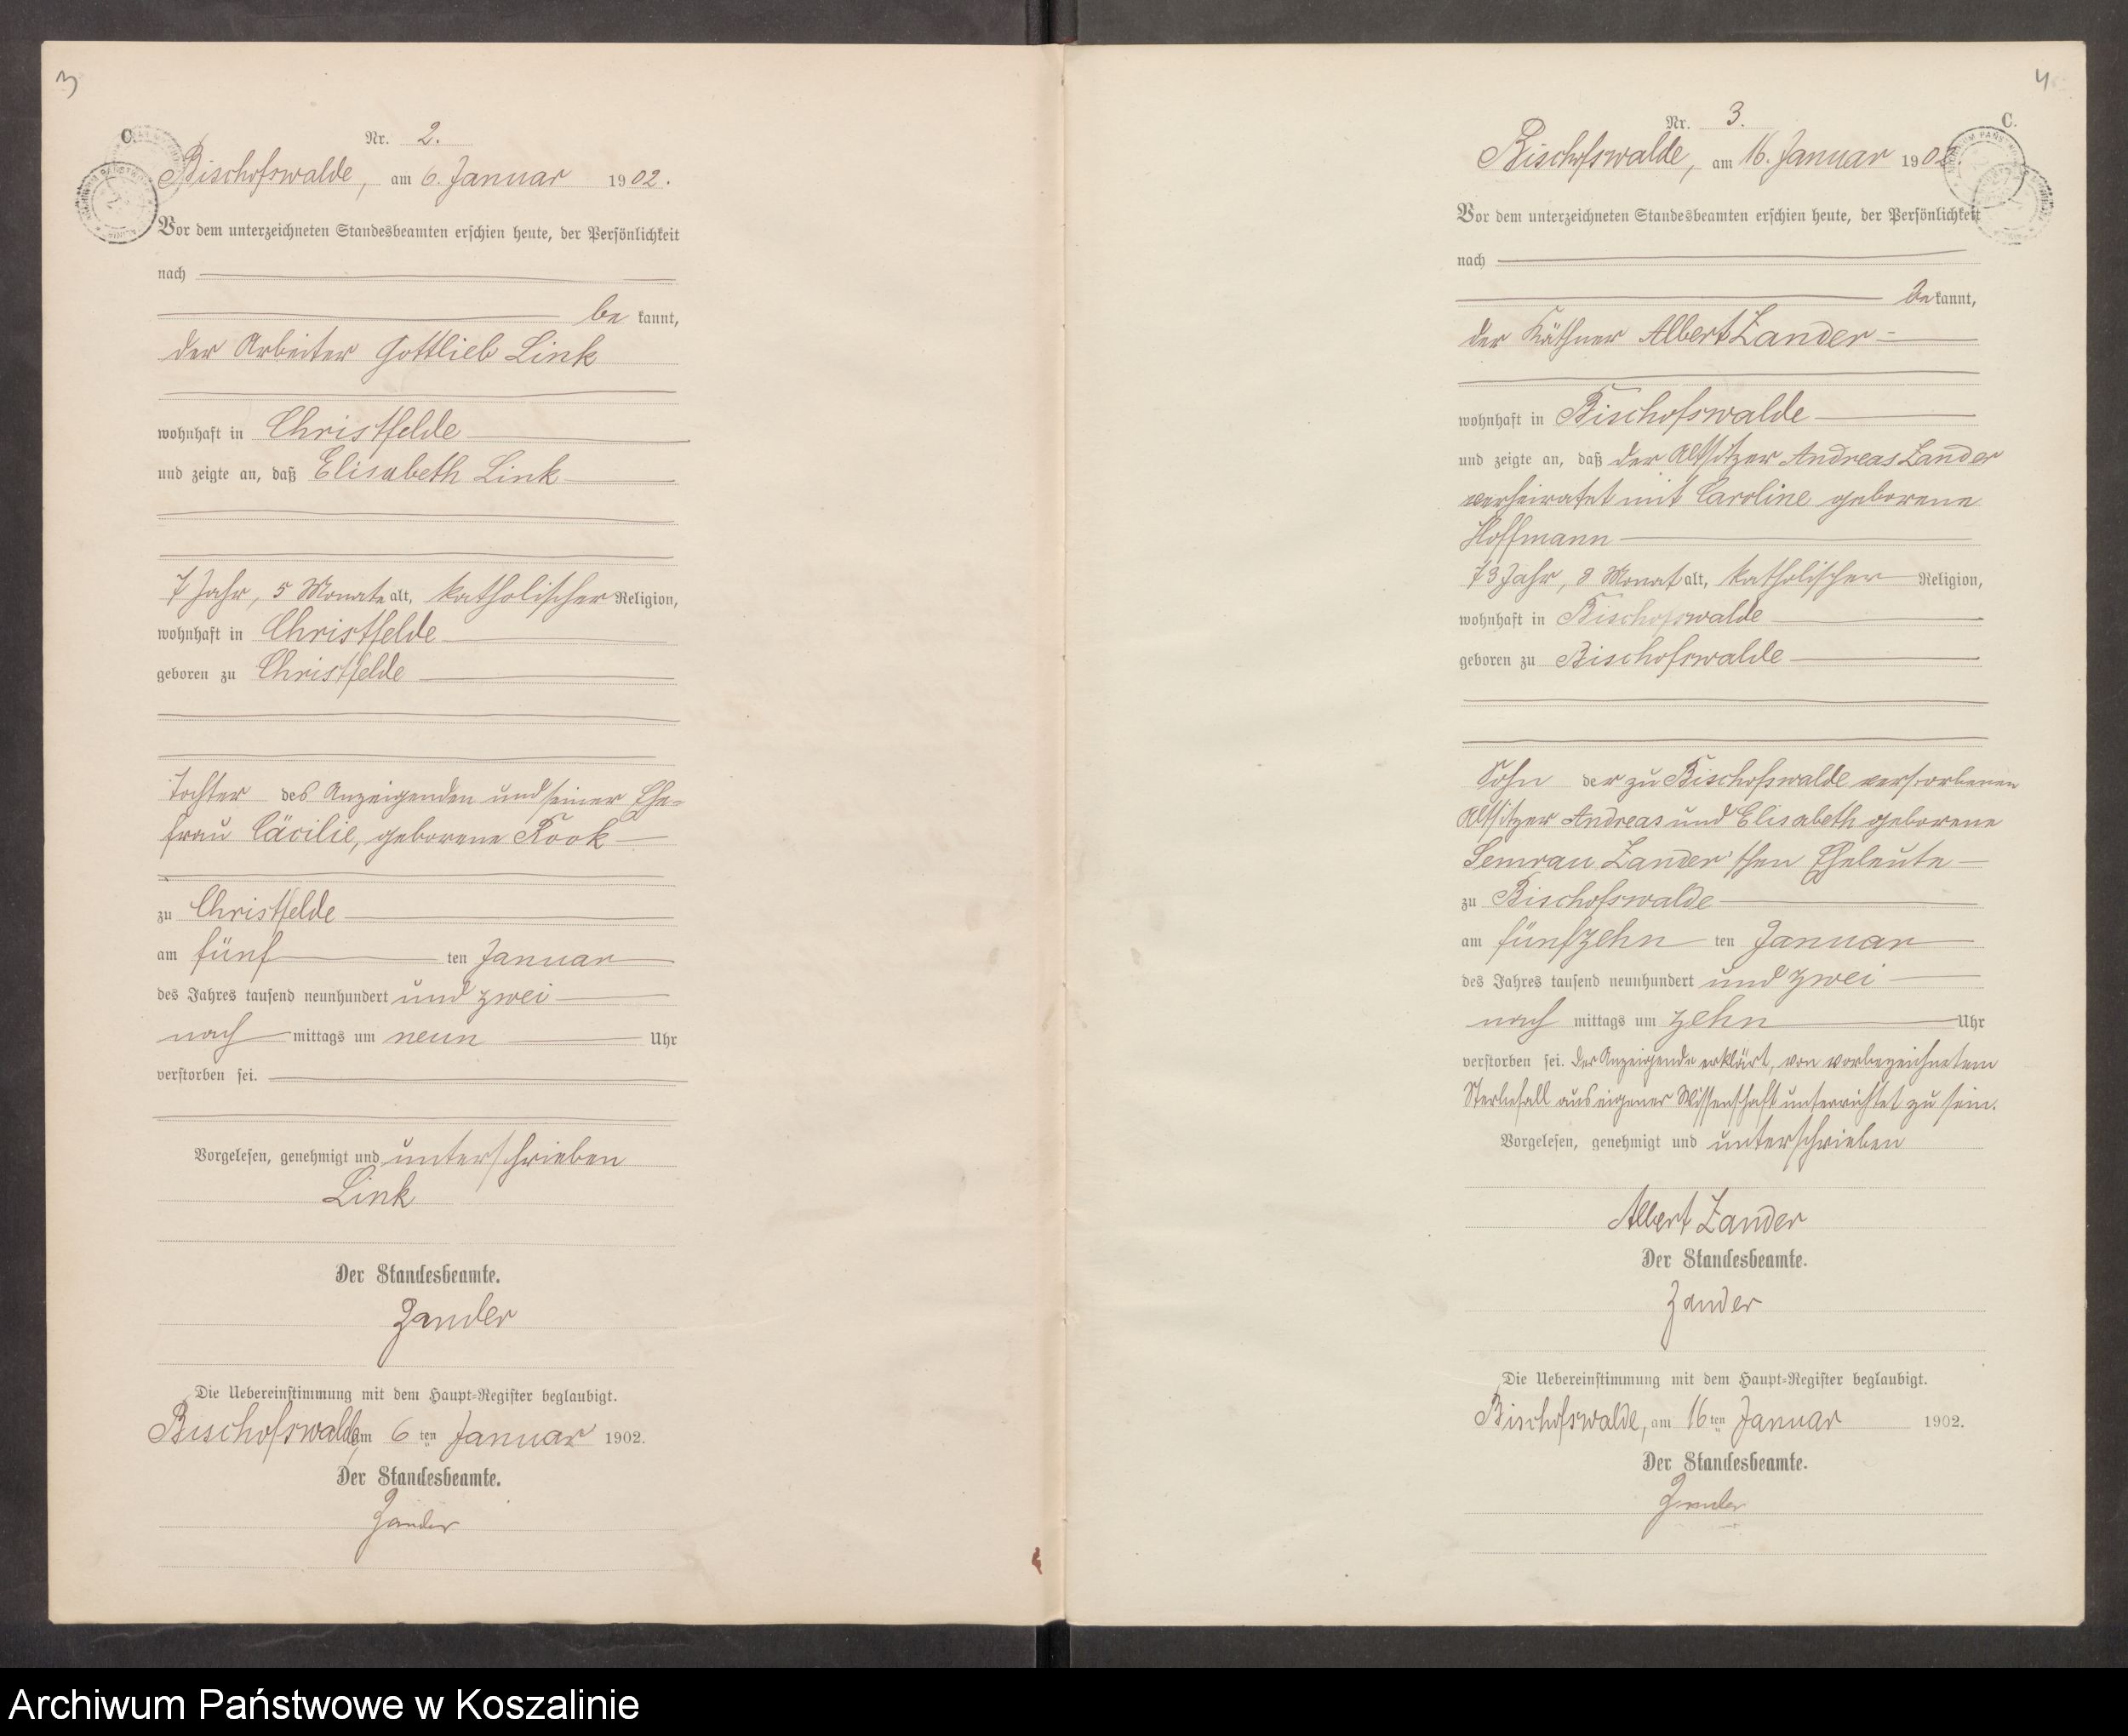 3
C.
Nr. 2.
Bischofswalde, am 6. Januar 1902.
Vor dem unterzeichneten Standesbeamten erschien heute, der Persönlichkeit
nach
be kannt,
der Arbeiter Gottlieb Link
wohnhaft in Christfelde
und zeigte an, daß Elisabeth Link
7 Jahr, 5 Monate alt, katholischer Religion,
wohnhaft in Christfelde
geboren zu Christfelde
Tochter des Anzeigenden und seiner Ehe-
frau Cäcilie, geborene Rook
zu Christfelde
am fünf ten Januar
des Jahres tausend neunhundert und zwei
nach mittags um neun Uhr
verstorben sei.
Vorgelesen, genehmigt und unterschrieben
Link
Der Standesbeamte.
Zander
Die Uebereinstimmung mit dem Haupt-Register beglaubigt.
Bischofswalde, am 6 ten Januar 1902.
Der Standesbeamte.
Zander
4
C.
Nr. 3.
Bischofswalde, am 16. Januar 1902.
Vor dem unterzeichneten Standesbeamten erschien heute, der Persönlichkeit
nach
be kannt,
der Käthner Albert Zander
wohnhaft in Bischofswalde
und zeigte an, daß der Altsitzer Andreas Zander
verheiratet mit Caroline geborene
Hoffmann
73 Jahr, 8 Monat alt, katholischer Religion,
wohnhaft in Bischofswalde
geboren zu Bischofswalde
Sohn der zu Bischofswalde verstorbenen
Altsitzer Andreas und Elisabeth geborene
Semrau Zander'schen Eheleute
zu Bischofswalde
am fünfzehn ten Januar
des Jahres tausend neunhundert und zwei
nach mittags um zehn Uhr
verstorben sei. Der Anzeigende erklärt, von vorbezeichnetem
Sterbefall aus eigener Wissenschaft unterrichtet zu sein.
Vorgelesen, genehmigt und unterschrieben
Albert Zander
Der Standesbeamte.
Zander
Die Uebereinstimmung mit dem Haupt-Register beglaubigt.
Bischofswalde, am 16 ten Januar 1902.
Der Standesbeamte.
Zander
Archiwum Państwowe w Koszalinie